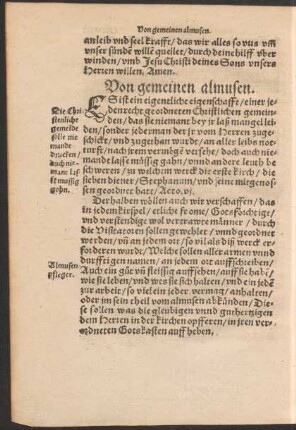 Von gemeinen almusen.
an leib vnd seel krafft / das wir alles so vns vm̃
vnser sünde willẽ quellet / durch deine hilff vber
winden / vmb Jesu Christi deines Sons vnsers
Herren willen, Amen.
Von gemeinen almusen.
Es ist ein eigentliche eigenschafft / einer je-
den recht geordneten Christlichen gemein-
den / das sie niemant bey jr laß mangel lei-
den / sonder jederman der jr vom Herren zuge-
schickt / vnd zugethan wurde / an aller leibs not-
turfft / nach jrem vermögẽ versehe / doch auch nie-
mande lasse müssig gahn / vnnd andere leuth be
schweren / zu welchem werck die erste kirch / die
sieben diener / Stephanum / vnd seine mitgenos-
sen geordnet hatt / Acto. vj.
Die Chri
stenliche
gemeide
sölle nie
mande
drucken /
auch nie-
mant lass
sẽ müssig
gohn.
Derhalben wöllen auch wir verschaffen / das
in jedem kirspel / erliche frome / Gotsförchtige /
vnd verstendige wol vertrawte männer / durch
die Visitatoren sollen gewehlet / vnnd geordnet
werden / vñ an jedem ort / so vil als diß werck er-
forderen wurde / Welche sollen aller armen vnnd
durfftigen namen / an jedem ort auffschreiben /
Auch ein gůt vñ fleissig auffsehen / auff sie habẽ /
wie sie leben / vnd wes sie sich halten / vnd ein jedẽ
zur arbeit / so viel ein jeder vermag / anhalten /
oder im sein theil vom almusen abkünden / Die-
se sollen was die gleubigen vnnd guthertzigen
dem Herren in der kirchen opfferen / in jren ver-
ordneten Gotskasten auff heben.
Almusen
pfleger.